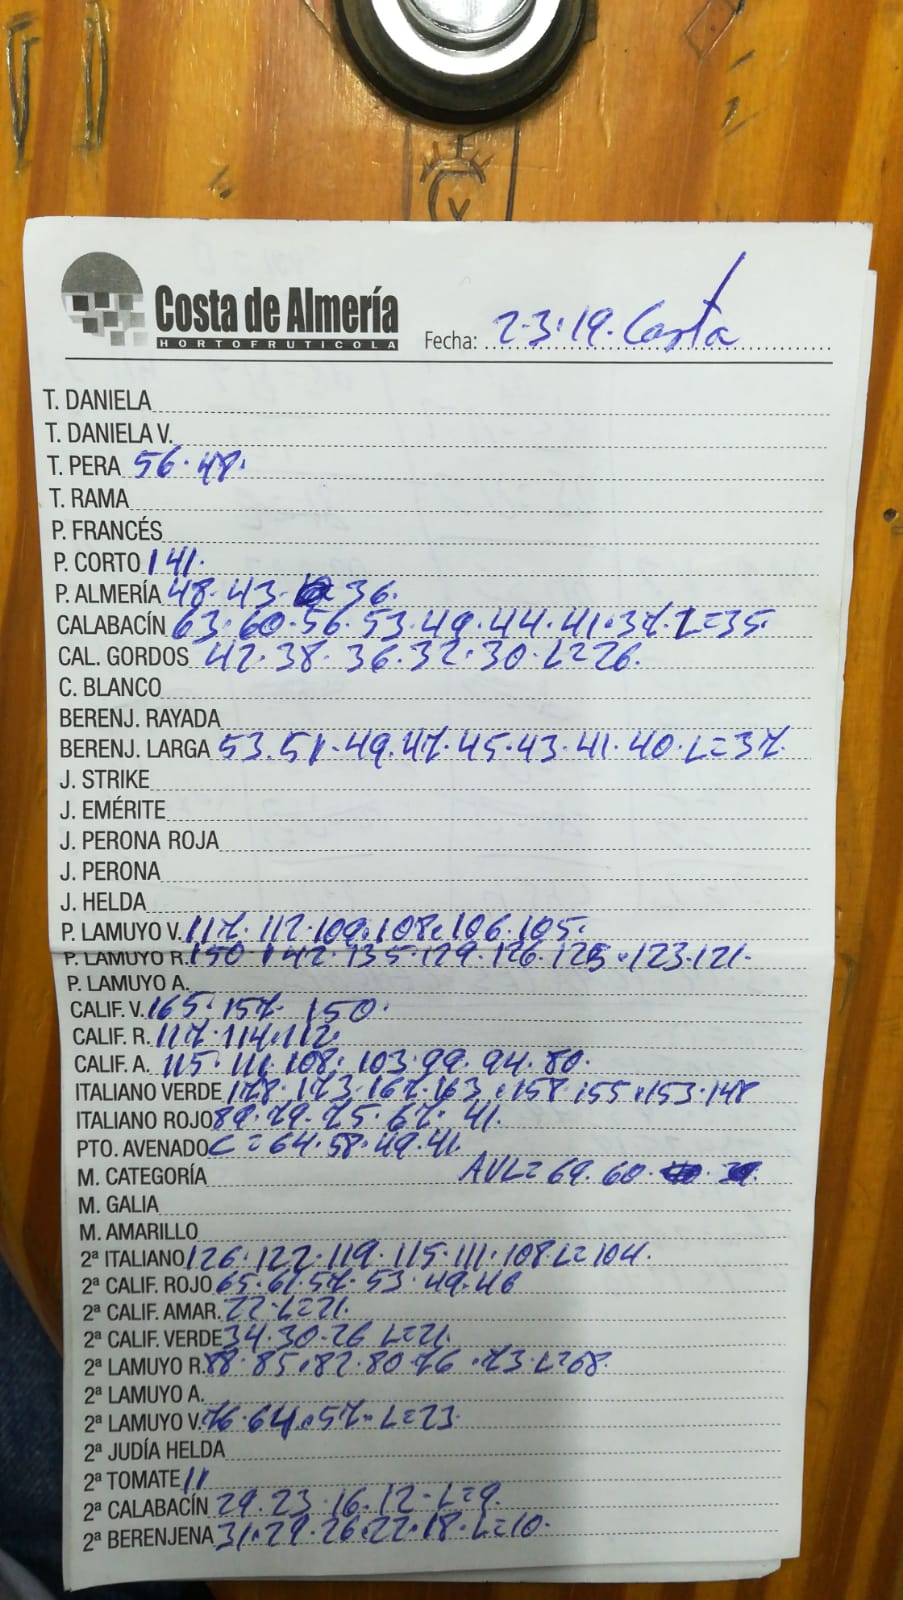 Costa de Almería
HORTOFRUTICOLA
Fecha: 2·3·19· Costa
T. DANIELA
T. DANIELA V.
T. PERA 56·48·
T. RAMA
P. FRANCÉS
P. CORTO 141·
P. ALMERÍA 48·43· 36·
CALABACÍN 63·60·56·53·49·44·41·37·L=35·
CAL. GORDOS 42·38·36·32·30·L=26·
C. BLANCO
BERENJ. RAYADA
BERENJ. LARGA 53·51·49·47·45·43·41·40·L=37·
J. STRIKE
J. EMÉRITE
J. PERONA ROJA
J. PERONA
J. HELDA
P. LAMUYO V. 117·112·109·108·106·105·
P. LAMUYO R. 150·142·135·129·126·125·123·121·
P. LAMUYO A.
CALIF. V. 165·157·150·
CALIF. R. 117·114·112·
CALIF. A. 115·111·108·103·99·94·80·
ITALIANO VERDE 178·173·167·163·158·155·153·148
ITALIANO ROJO 89·79·75·67·41·
PTO. AVENADO C=64·58·49·41·
M. CATEGORÍA AVL=69·60·
M. GALIA
M. AMARILLO
2ª ITALIANO 126·122·119·115·111·108·L=104·
2ª CALIF. ROJO 65·61·57·53·49·46
2ª CALIF. AMAR. 22·L=21·
2ª CALIF. VERDE 34·30·26 L=21·
2ª LAMUYO R. 88·85·82·80·76·73·L=68·
2ª LAMUYO A.
2ª LAMUYO V. 76·64·57·L=23·
2ª JUDÍA HELDA
2ª TOMATE 11
2ª CALABACÍN 29·23·16·12·L=9·
2ª BERENJENA 31·29·26·22·18·L=10·